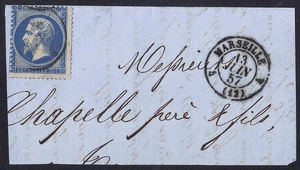 MARSEILLE
13
JUIN
57
(12)
Messieurs
Chapelle père & fils,